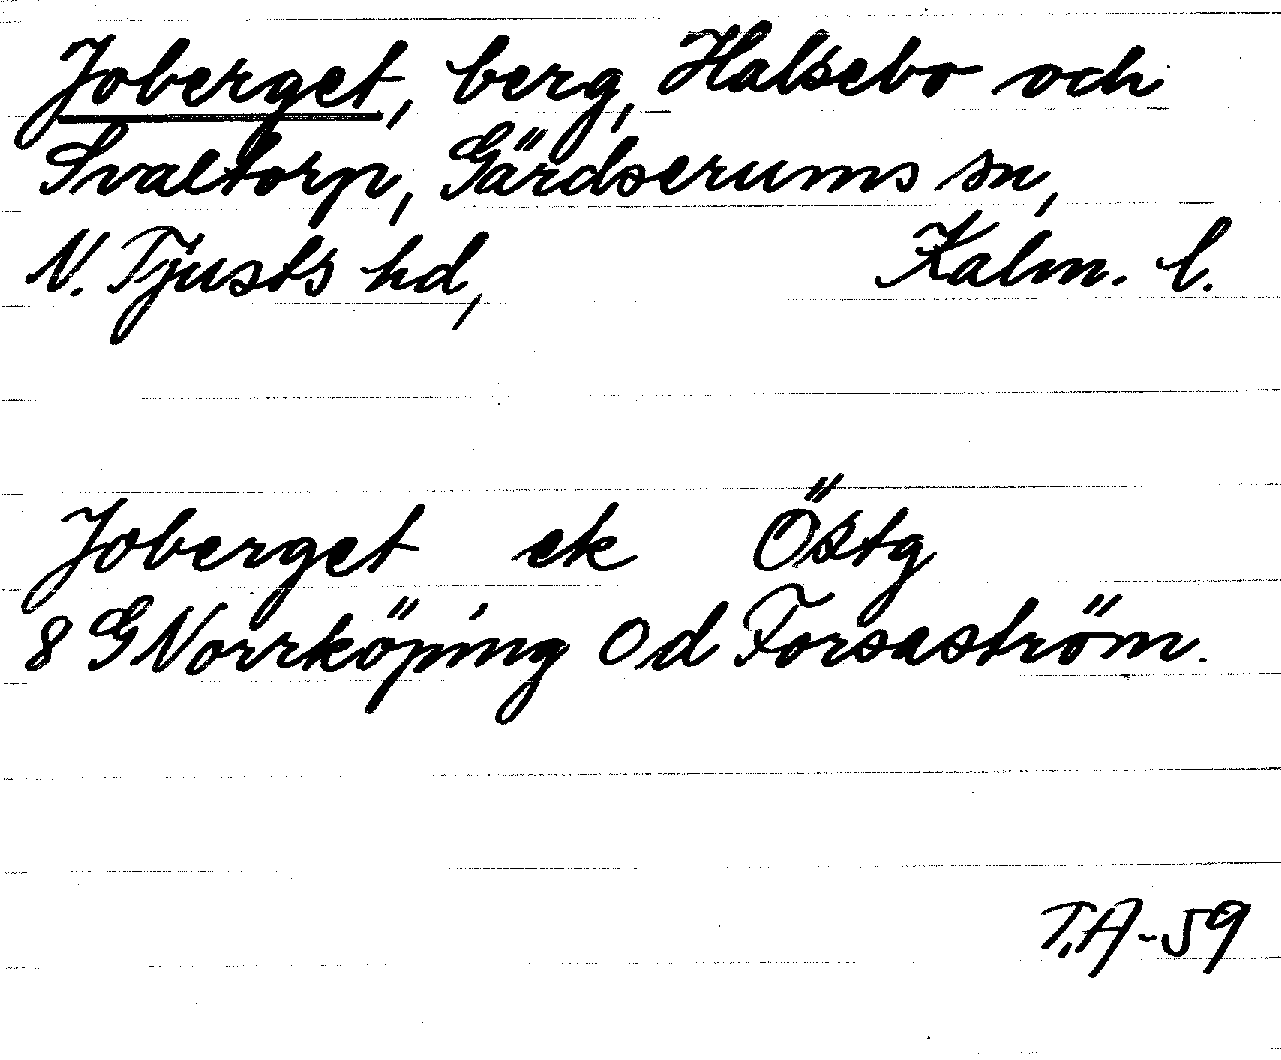 Joberget, berg, Halsebo och
Svaltorp, Gärdserums sn,
N. Tjusts hd, Kalm. l.
Joberget ek Östg
8 G Norrköping 0d Forsaström.
T.A-59